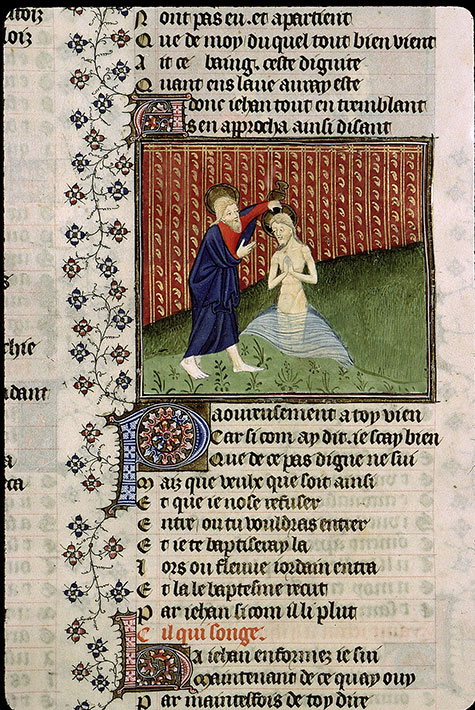 N ont pas eu. et apartient
Q ue de moy du quel tout bien vient
A it ce baing. ceste dignite
Q uant ens laue auray este
A donc iehan tout en tremblant
S en aprocha ainsi disant
P aoureusement a toy vien
Car si com ay dit. ie scay bien
Que de ce pas digne ne sui
M aiz que veulx que soit ainsi
E t que ie nose refuser
E ntre ou tu vouldras entrer
E t ie te baptiseray la
L ors ou fleuue iordain entra
E t la le baptesme recut
P ar iehan si com il li plut
C il qui songe.
H a iehan enformez ie sui
Maintenant de ce quay ouy
P ar maintesfois de toy dire
dant